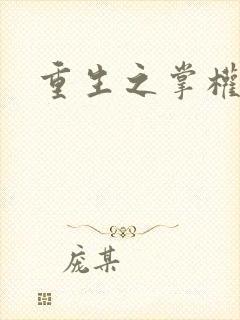 重生之掌權
庞某